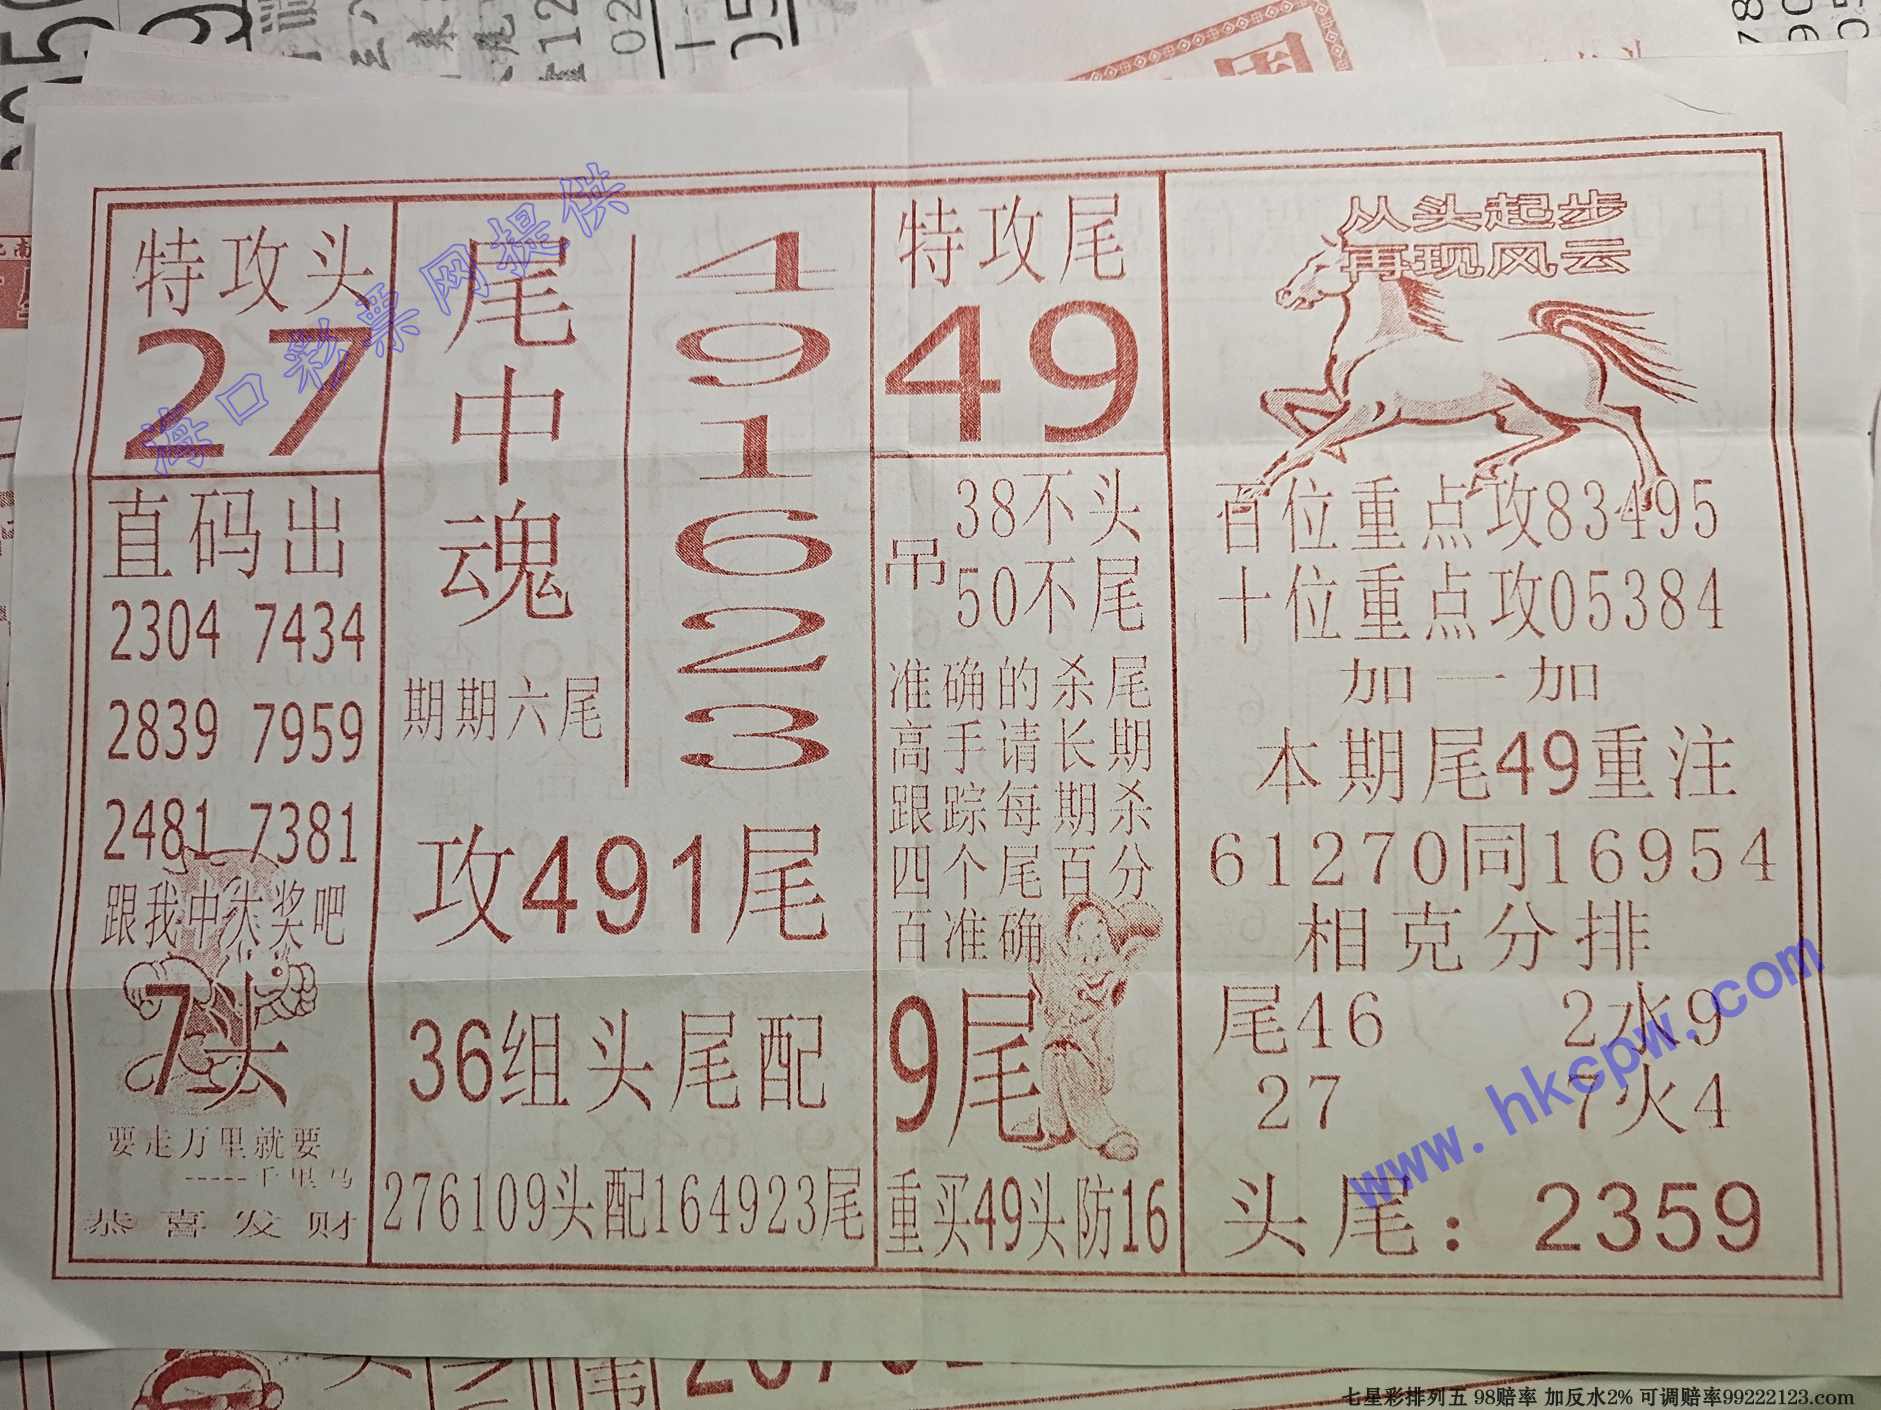 特攻头
27
直码出
2304 7434
2839 7959
2481 7381
跟我中大奖吧
7头
要走万里就要
-----千里马
恭喜发财
尾中魂
期期六尾
4
9
1
6
2
3
攻491尾
36组头尾配
276109头配164923尾
特攻尾
49
38不头
吊
50不尾
准确的杀尾
高手请长期
跟踪每期杀
四个尾百分
百准确
9尾
重买49头防16
从头起步
再现风云
百位重点攻83495
十位重点攻05384
加一加
本期尾49重注
61270同16954
相克分排
尾46 2水9
27 7火4
头尾：2359
海口彩票网提供
www.hkcpw.com
七星彩排列五 98赔率 加反水2% 可调赔率99222123.com